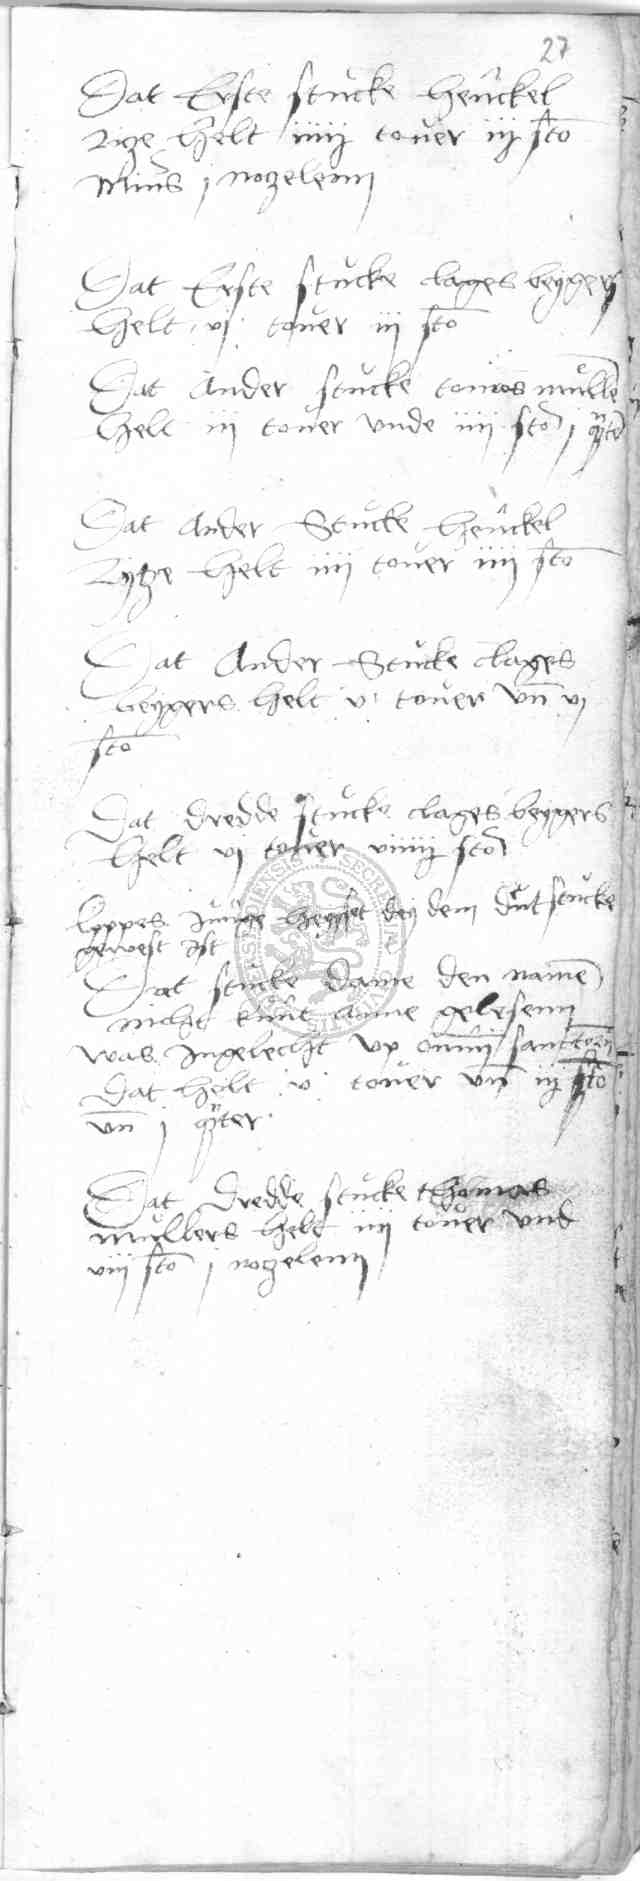 27
Dat Erste stucke henckel
Ritze helt iiiij touer iij sto
Min9 j notzelenn
Dat Erste stucke clages beygers
helt vj touer iij sto
Dat Ander stucke tomos mulle
helt iij touer vnde iiij sto j qrter
Dat Ander Stucke henckel
Ritze helt iiij touer iiij sto
Dat Ander Stucke clages
beygers helt v touer vn vj
sto
Dat dredde stucke clages beygers
helt vj touer viiiij sto
Lyppes Junge heysset dey dem dut stucke
gewest ist
Dat stucke dame den name
nicht kunt anne gelesenn
was Ingelecht vp omnii sanctorn
Dat helt v touer vn iij sto
vn j qrter
Dat dredde stucke thomas
mullers helt iiij touer vnd
viij sto j notzelenn